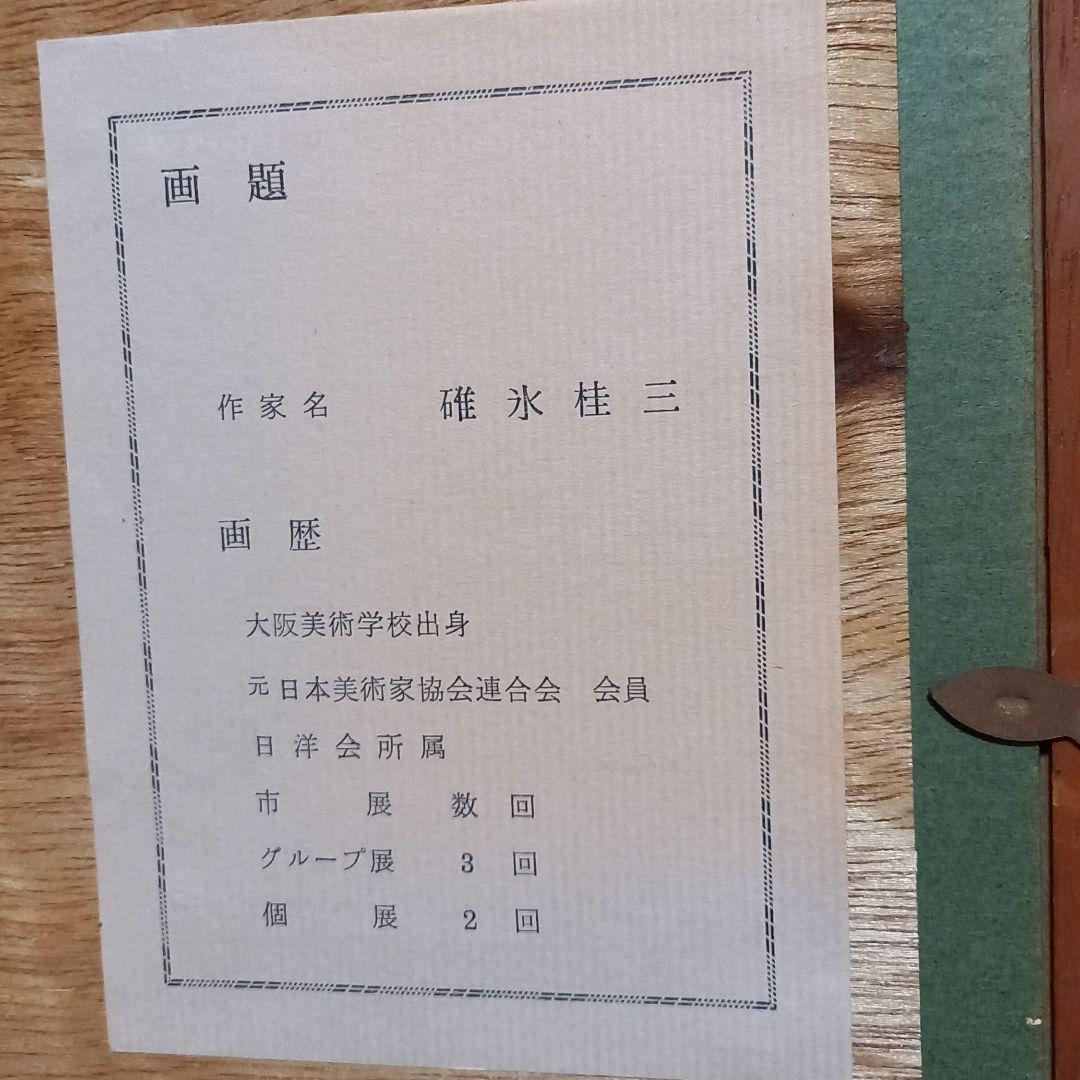 画題
作家名 碓氷桂三
画歴
大阪美術学校出身
元日本美術家協会連合会 会員
日洋会所属
市展 数回
グループ展 3回
個展 2回